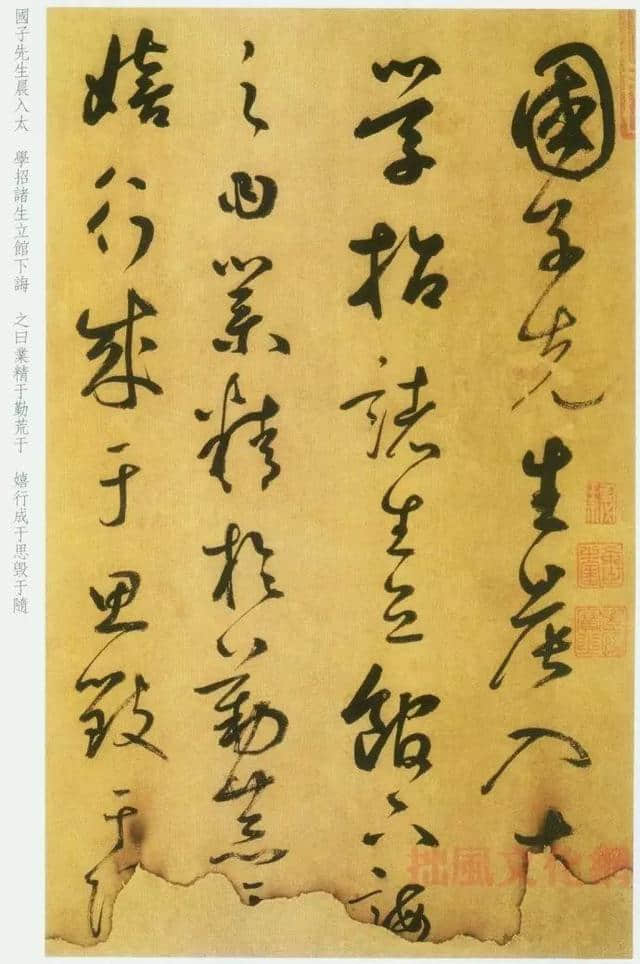 國子先生晨入太
學招諸生立館下誨
之曰業精於勤荒于
嬉行成于思毀于
國子先生晨入太　學招諸生立館下誨　之曰業精于勤荒于　嬉行成于思毀于隨
拙風文化網